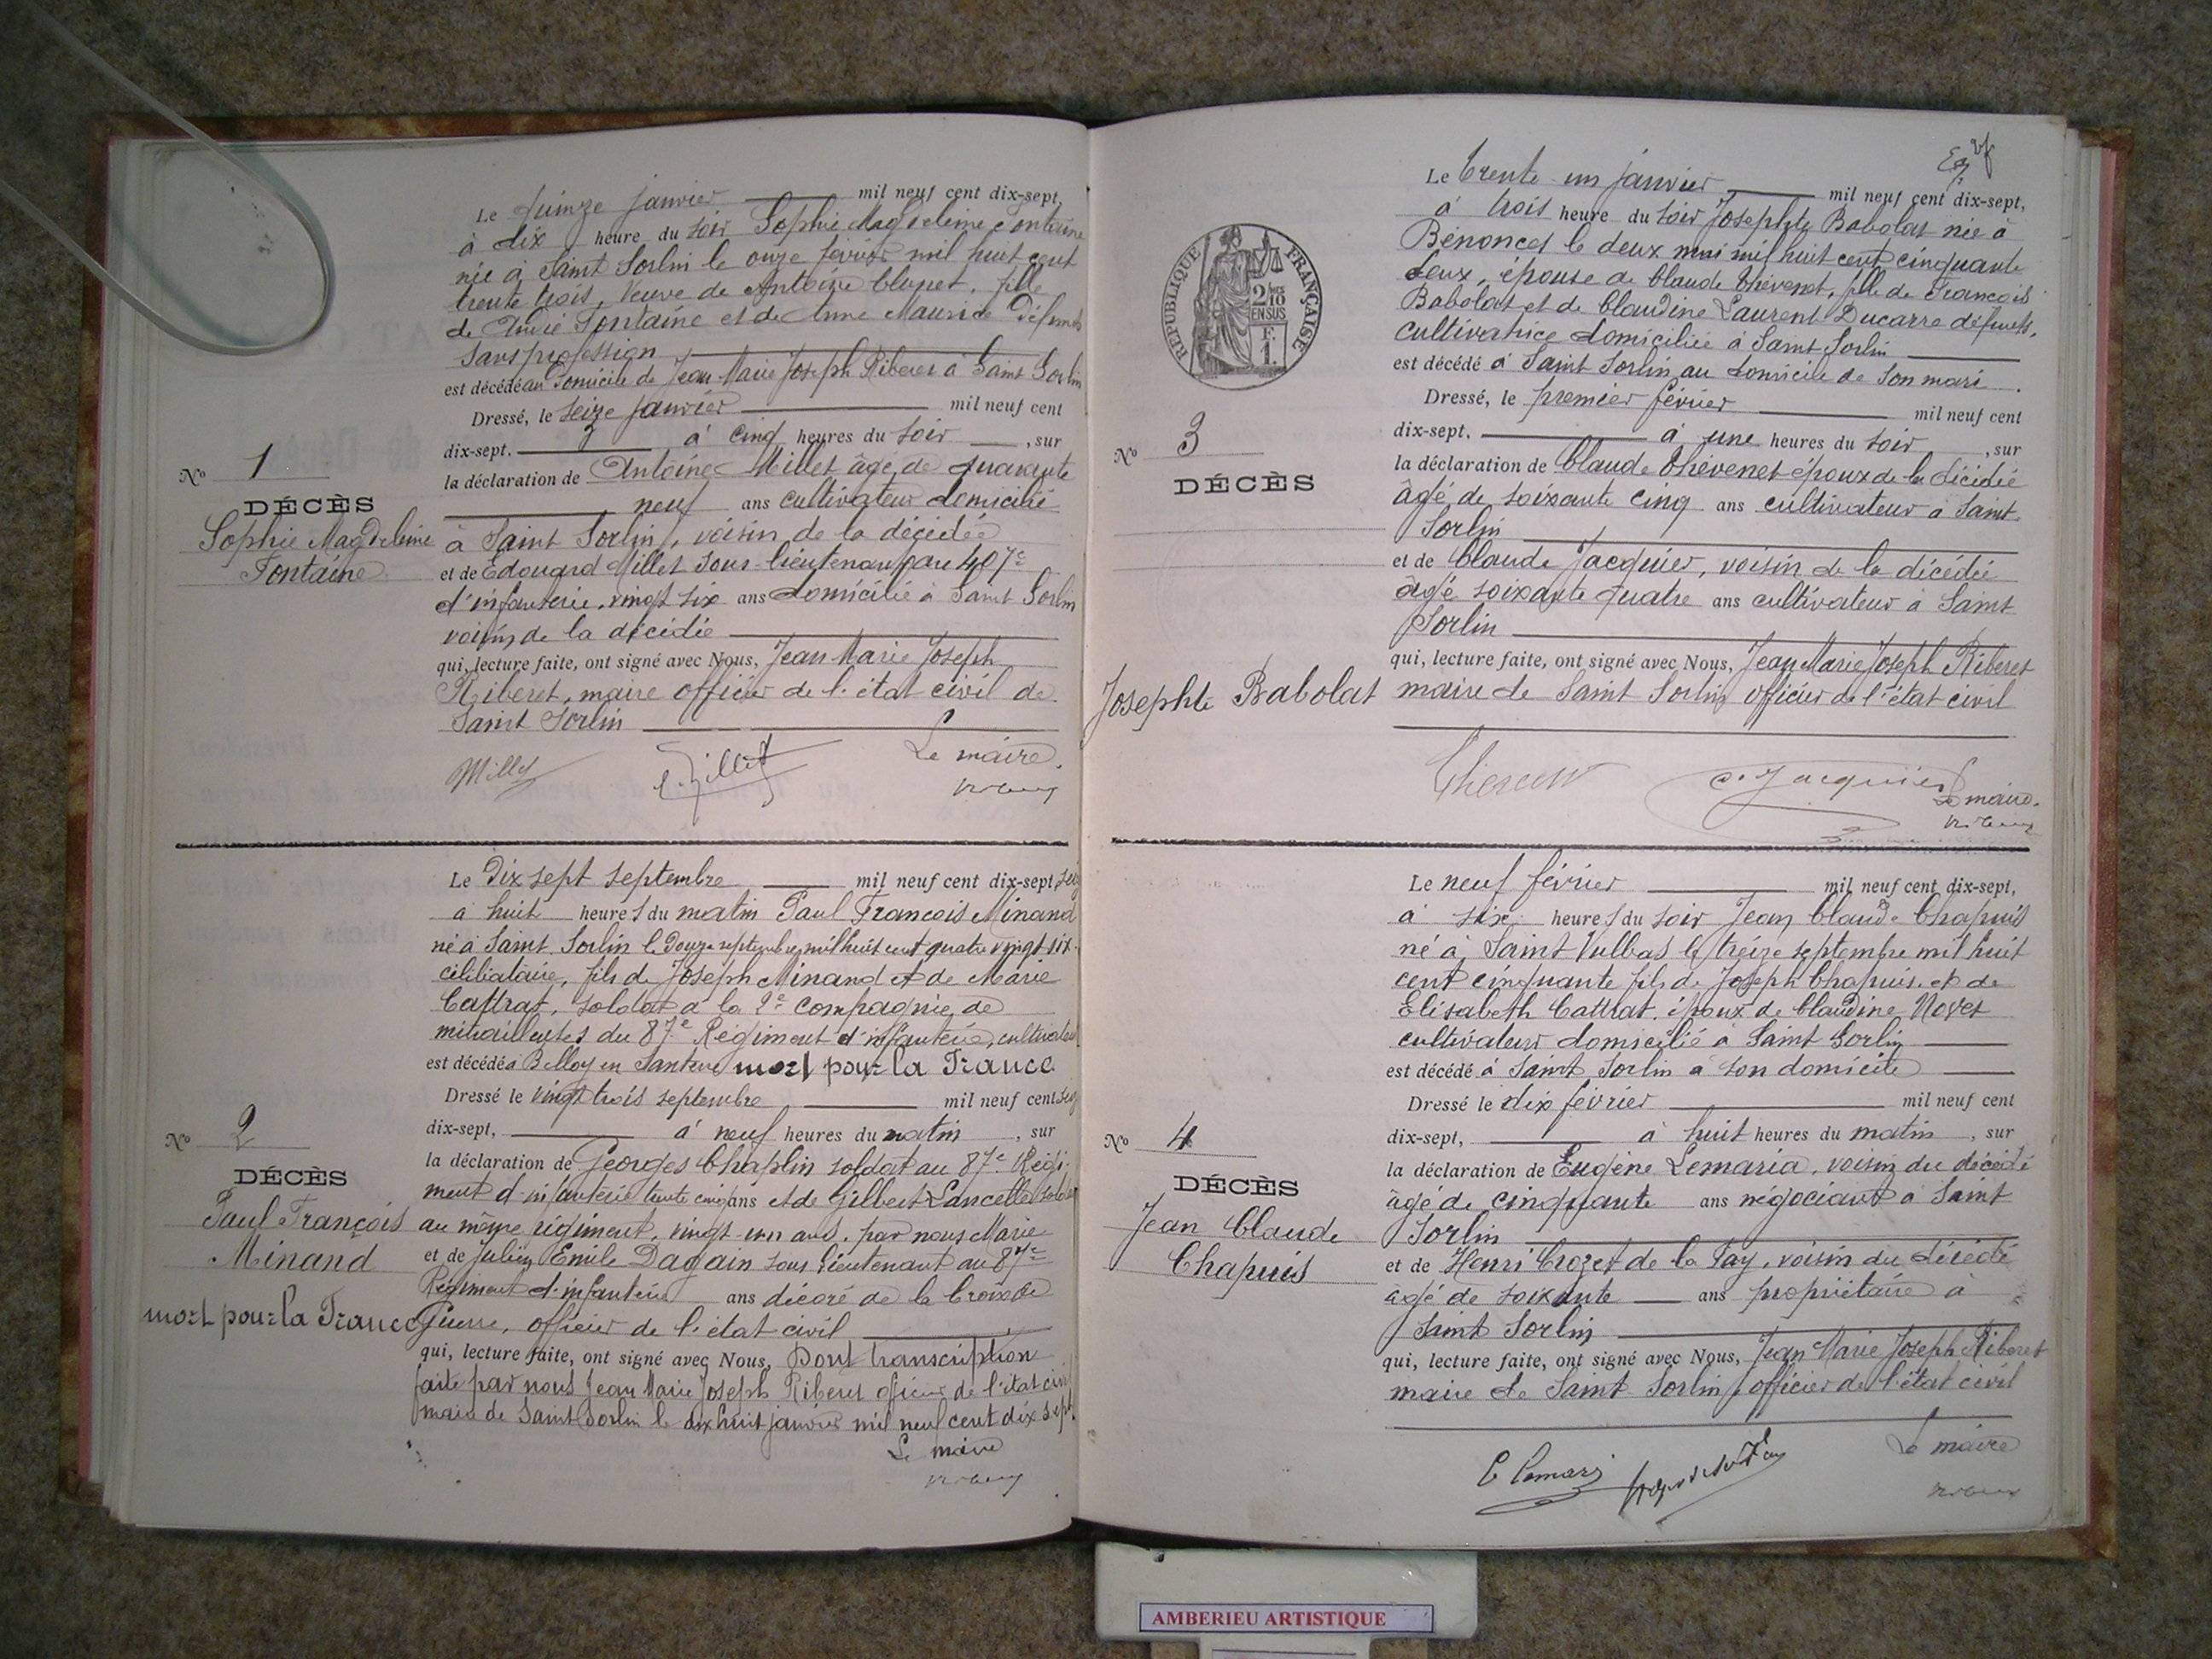 Le quinze janvier mil neuf cent dix-sept,
à dix heure du soir Sophie Magdeleine Fontaine
née à Saint Sorlin le onze février mil huit cent
trente trois, Veuve de Antoine, fille
de André Fontaine et de Anne Maurice Défunts
Sans profession
est décédé au Domicile de Jean Marie Joseph Riberet à Saint Sorlin
Dressé, le seize janvier mil neuf cent
dix-sept. à cinq heures du soir, sur
la déclaration de Antoine Millet âgé de quarante
neuf ans cultivateur domicilié
à Saint Sorlin, voisin de la décédée
et de Edouard Millet Sous-lieutenant au 407e
d'infanterie, vingt six ans domicilié à Saint Sorlin
voisin de la décédée
qui, lecture faite, ont signé avec Nous, Jean Marie Joseph
Riberet, maire officier de l'état civil de
Saint Sorlin
Le maire.
No 1
DÉCÈS
Sophie Magdeleine
Fontaine
Le Dix sept septembre mil neuf cent dix-sept
à huit heures du matin Paul François Minand
né à Saint Sorlin le Douze septembre mil huit cent quatre vingt six
célibataire, fils de Joseph Minand et de Marie
Cattrat, soldat à la 2e Compagnie de
mitrailleuses du 87e Régiment d'infanterie, cultivateur
est décédé à Belloy en Santerre mort pour la France
Dressé le vingt trois septembre mil neuf cent
dix-sept, à neuf heures du matin, sur
la déclaration de Georges Chaplin soldat au 87e Régi-
ment d'infanterie trente cinq ans et de Gilbert Lancelle soldat
au même régiment, vingt un ans, par nous Marie
et de Julien Emile Dagain sous lieutenant au 87e
Régiment d'infanterie ans décoré de la Croix de
Guerre, officier de l'état civil
qui, lecture faite, ont signé avec Nous, Pour transcription
faite par nous Jean Marie Joseph Riberet officier de l'état civil
maire de Saint Sorlin le dix huit janvier mil neuf cent dix sept.
Le maire
No 2
DÉCÈS
Paul François
Minand
mort pour la France
Le trente un janvier mil neuf cent dix-sept,
à trois heure du soir Josephte Babolat née à
Bénonces le deux mai mil huit cent cinquante
deux, épouse de Claude Thévenet, fille de François
Babolat et de Claudine Laurent Ducarre défunts,
cultivatrice domiciliée à Saint Sorlin
est décédé à Saint Sorlin au domicile de son mari.
Dressé, le premier février mil neuf cent
dix-sept, à une heures du soir, sur
la déclaration de Claude Thévenet époux de la décédée
âgé de soixante cinq ans cultivateur à Saint
Sorlin
et de Claude Jacquier, voisin de la décédée
âgé soixante quatre ans cultivateur à Saint
Sorlin
qui, lecture faite, ont signé avec Nous, Jean Marie Joseph Riberet
maire de Saint Sorlin officier de l'état civil
C. Jacquier
Le maire.
RÉPUBLIQUE FRANÇAISE
2/10
EN SUS
F.
1.
No 3
DÉCÈS
Josephte Babolat
Le neuf février mil neuf cent dix-sept,
à six heures du soir Jean Claude Chapuis
né à Saint Vulbas le treize septembre mil huit
cent cinquante fils de Joseph Chapuis et de
Elisabeth Cattrat, époux de Claudine Noyet
cultivateur domicilié à Saint Sorlin
est décédé à Saint Sorlin à son domicile
Dressé le dix février mil neuf cent
dix-sept, à huit heures du matin, sur
la déclaration de Eugène Lemaria, voisin du décédé
âgé de cinquante ans négociant à Saint
Sorlin
et de Henri Crozet de la Fay, voisin du décédé
âgé de soixante ans propriétaire à
Saint Sorlin
qui, lecture faite, ont signé avec Nous, Jean Marie Joseph Riberet
maire de Saint Sorlin, officier de l'état civil
Le maire
No 4
DÉCÈS
Jean Claude
Chapuis
AMBERIEU ARTISTIQUE